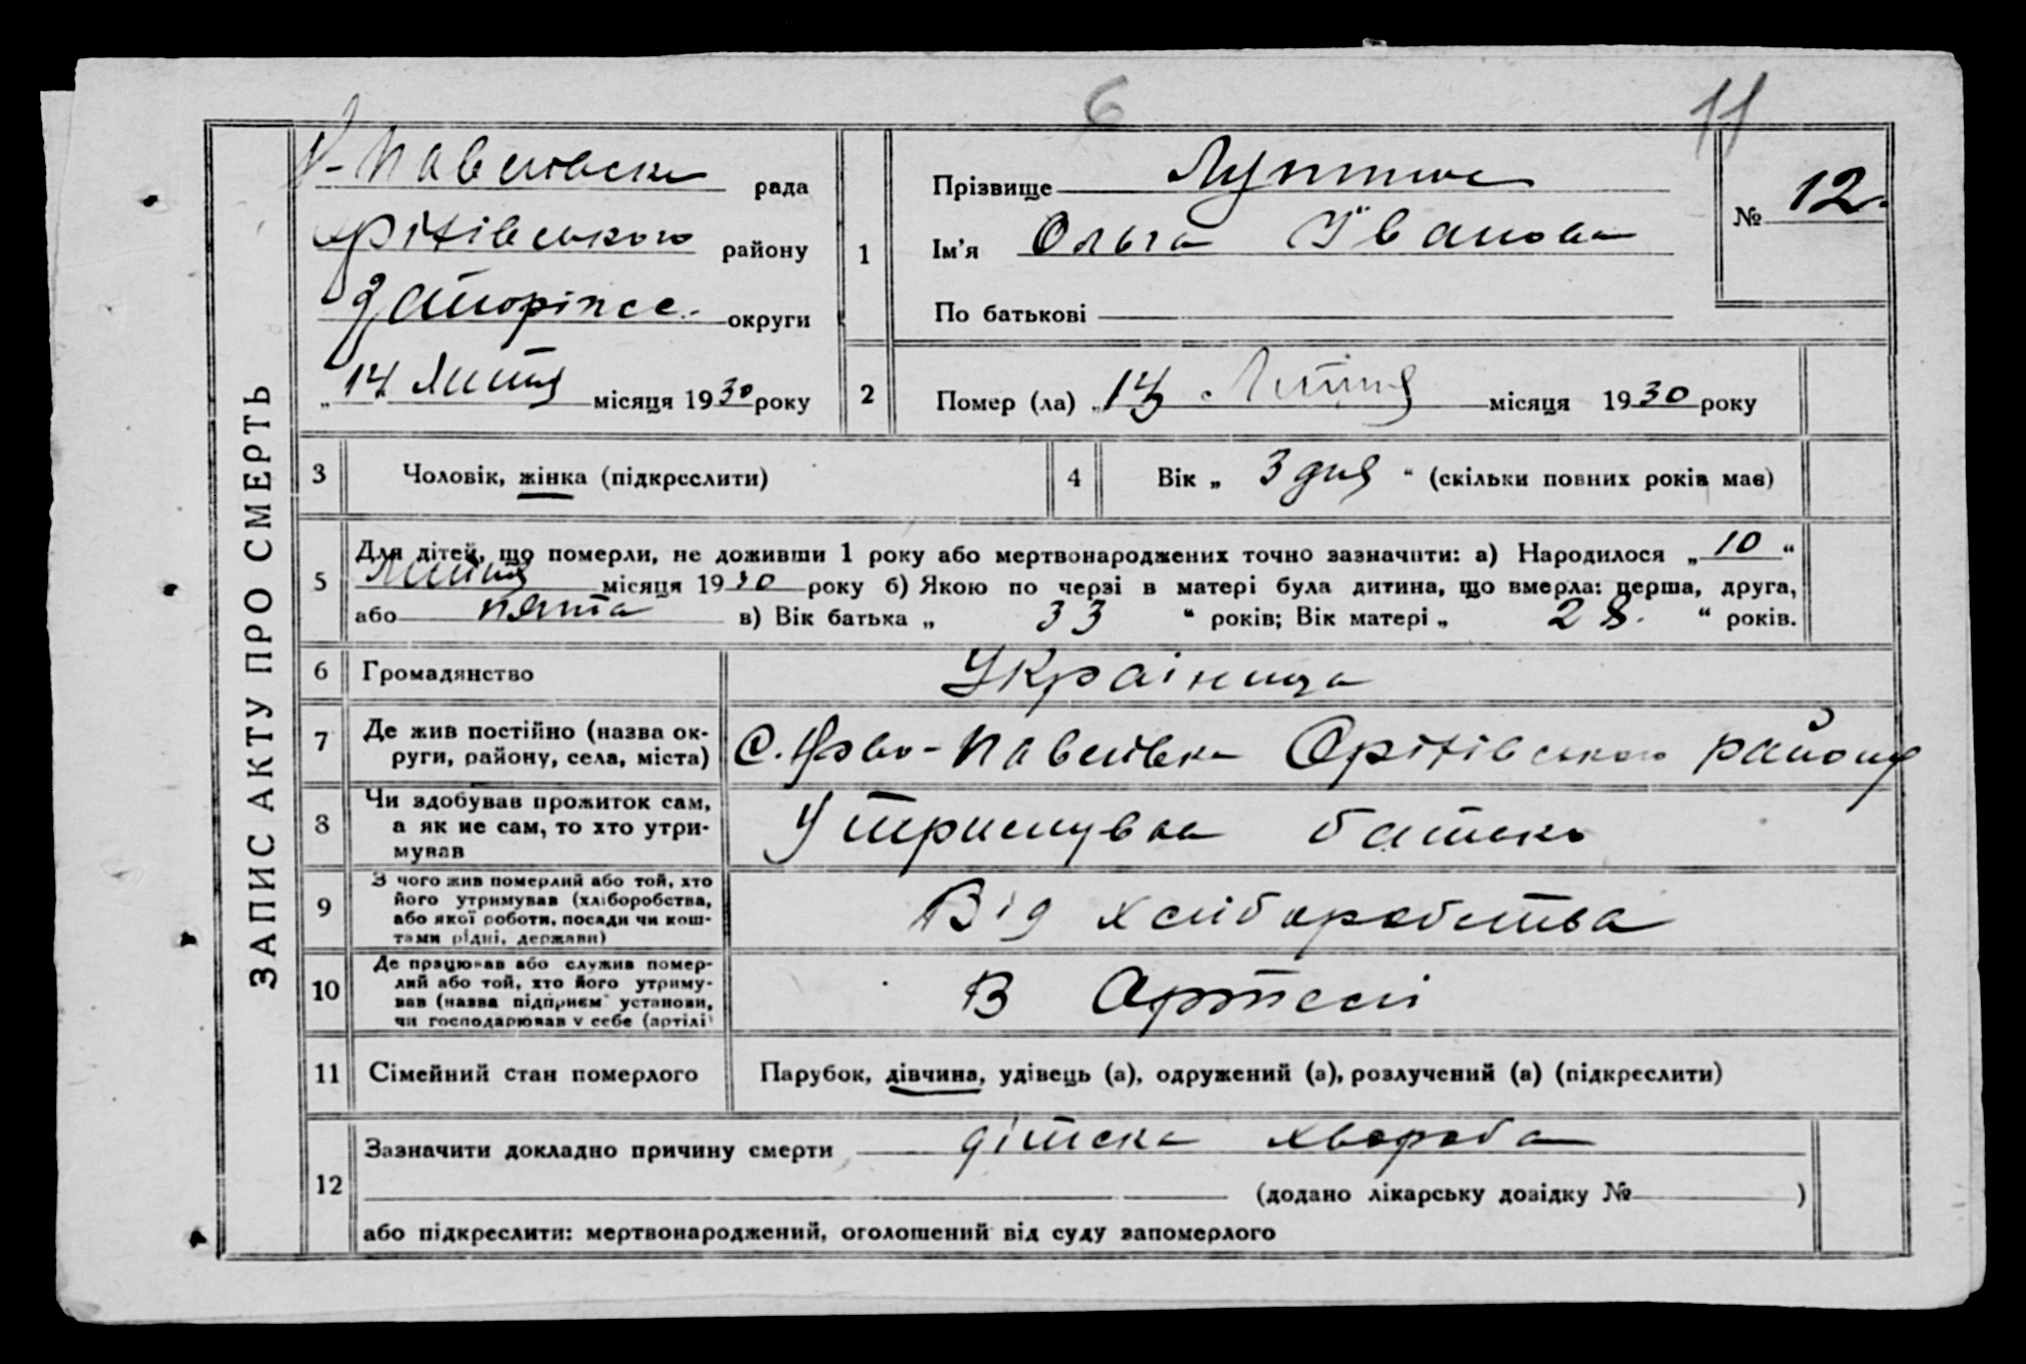 6
11
ЗАПИС АКТУ ПРО СМЕРТЬ
рада
Оріхівського району
Запоріжсс. округи
„14 Липня місяця 1930 року
1
Прізвище
Ім'я Ольга Іванова
По батькові
№ 12.
2
Помер (ла) „13 Липня місяця 1930 року
3
Чоловік, жінка (підкреслити)
4
Вік „ 3 дня “ (скільки повних років має)
5
Для дітей, що померли, не доживши 1 року або мертвонароджених точно зазначити: а) Народилося „ 10 “
Липня місяця 1930 року б) Якою по черзі в матері була дитина, що вмерла: перша, друга,
або пята в) Вік батька „ 33 “ років; Вік матері „ 28. “ років.
6
Громадянство
Україница
7
Де жив постійно (назва ок-
руги, району, села, міста)
С. Ново-Павлівка Оріхівського району
8
Чи здобував прожиток сам,
а як не сам, то хто утри-
мував
Утримував батько
9
З чого жив померлий або той, хто
його утримував (хліборобства,
або якої роботи, посади чи кош-
тами рідні, держави)
Від хліборобства
10
Де працював або служив помер-
лий або той, хто його утриму-
вав (назва підприєм установи,
чи господарював у себе (артілі
В Артелі
11
Сімейний стан померлого
Парубок, дівчина, удівець (а), одружений (а), розлучений (а) (підкреслити)
12
Зазначити докладно причину смерти дітска хвороба
(додано лікарську довідку № )
або підкреслити: мертвонароджений, оголошений від суду запомерлого